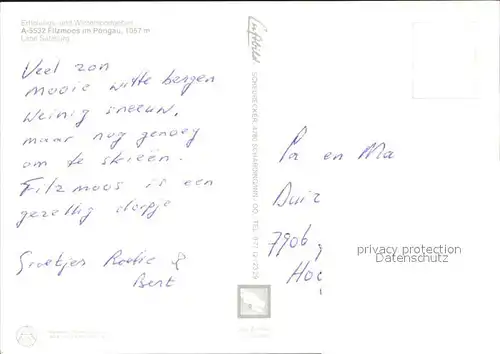 Erholungs- und Wintersportgebiet
A-5532 Filzmoos im Pongau, 1057 m
Land Salzburg
Veel zon
mooie witte bergen
weinig sneeuw,
maar nog genoeg
om te skiëen.
Filzmoos is een
gezellig dorpje
Groetjes &
Bert
Luftbild
Pa en Ma
7906
privacy protection
Datenschutz